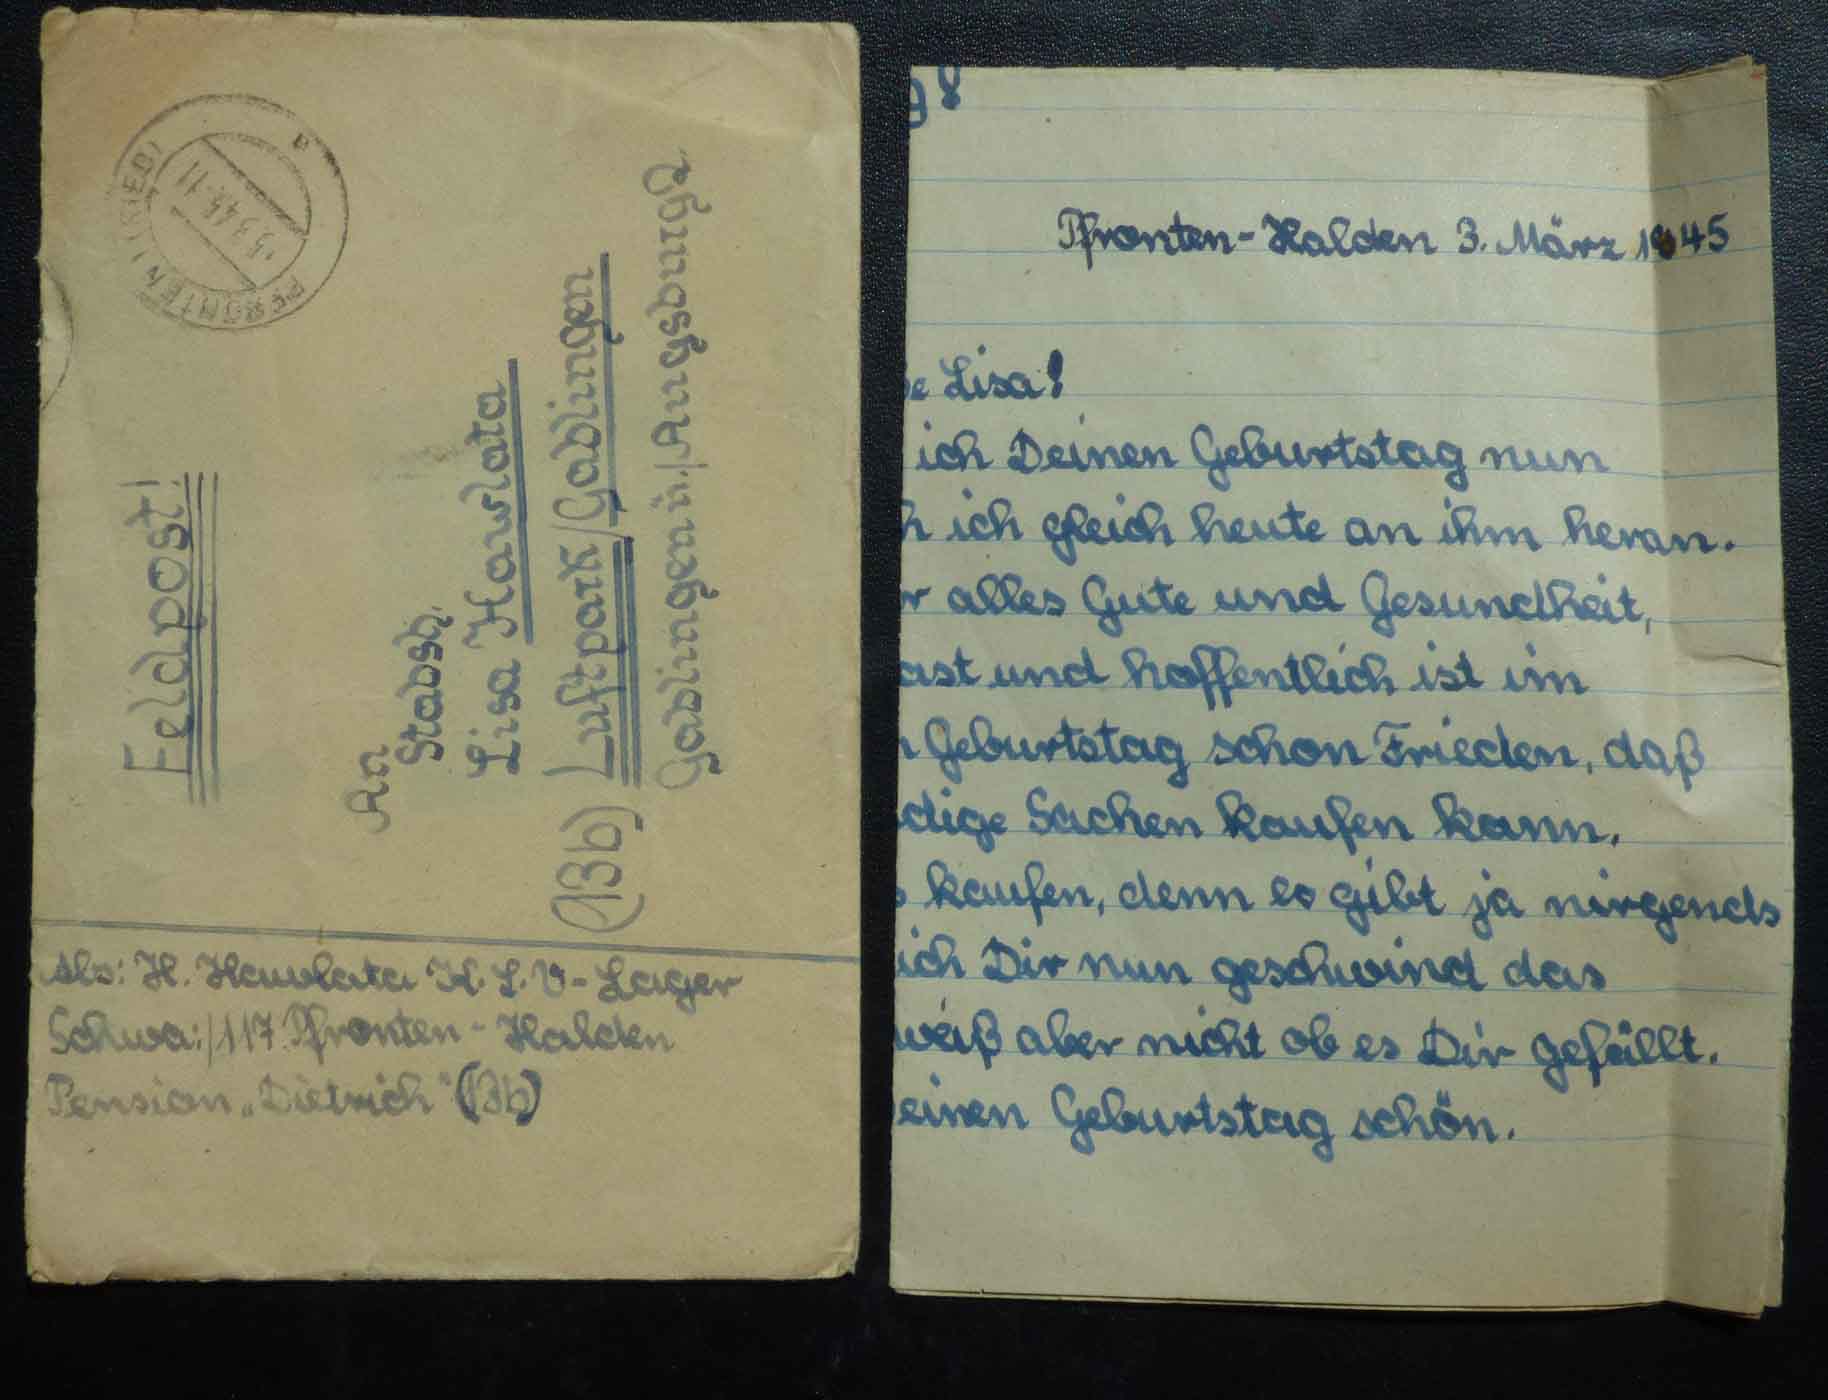 PFRONTEN (RIED)
-5.3.45-11
Feldpost!
An
Stabsh.
Lisa Hawlata
(13b) Luftpark/Gablingen
Gablingen ü/Augsburg 2
Abs: H. Hawlata K.L.V-Lager
Schwa:/117. Pfronten-Halden
Pension „Dietrich" (13b)
98
Pfronten-Halden 3. März 1945
e Lisa!
ich Deinen Geburtstag nun
h ich gleich heute an ihm heran.
r alles Gute und Gesundheit,
ast und hoffentlich ist im
n Geburtstag schon Frieden, daß
dige Sachen kaufen kann.
s kaufen, denn es gibt ja nirgends
ich Dir nun geschwind das
weiß aber nicht ob es Dir gefällt.
einen Geburtstag schön.